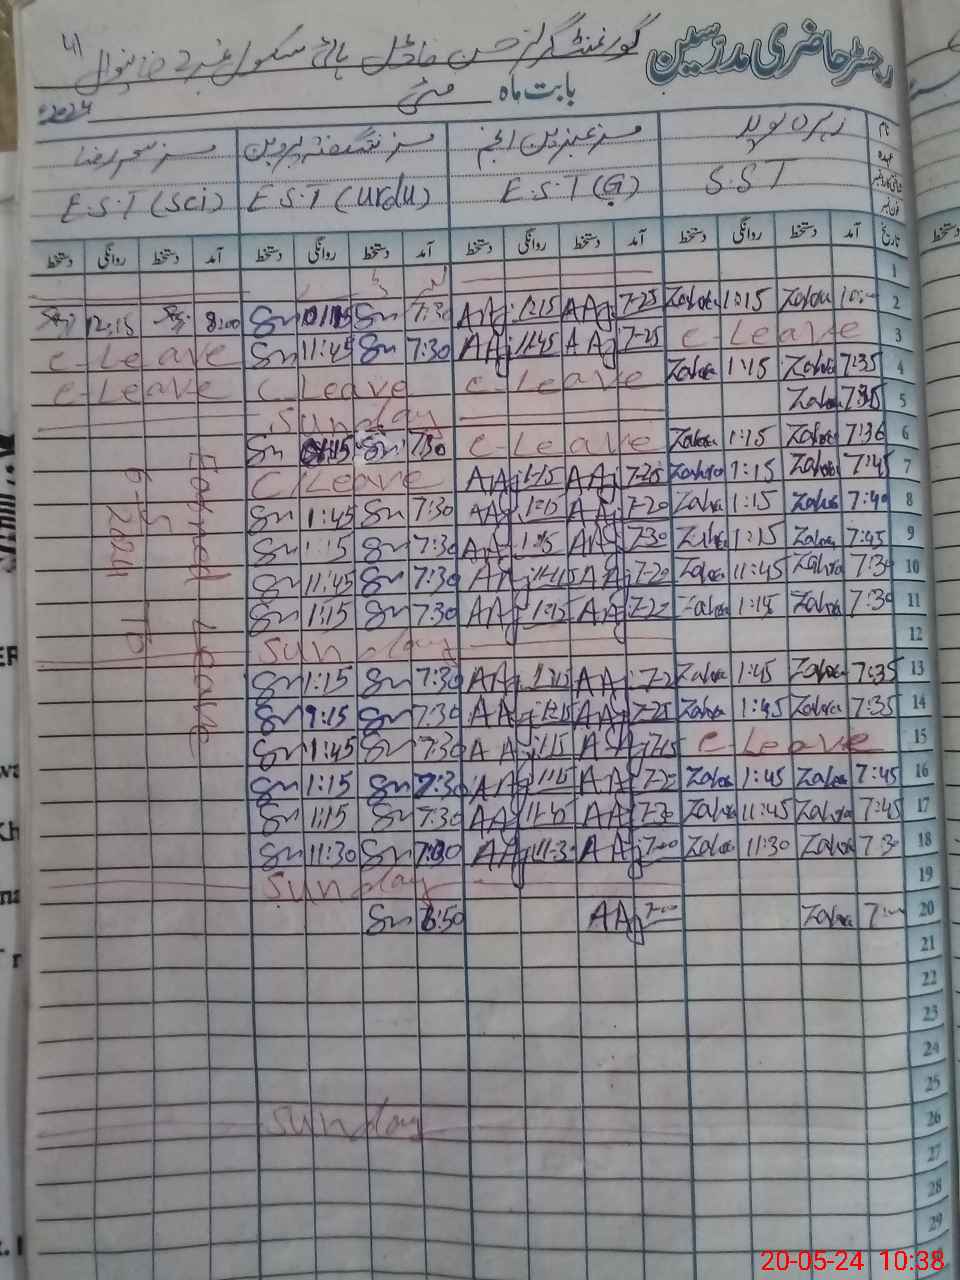 رجسٹر حاضری مدرسین
گورنمنٹ گرلز حسن ماڈل ہائی سکول نمبر 2 خانیوال
41
بابت ماہ مئی 2024
نام زہرہ نوید مسز عنبرین انجم مسز شگفتہ پروین مسز سحر رضا
عہدہ
شناختی کارڈ نمبر S.S.T E.S.T (G) E.S.T (Urdu) E.S.T (Sci)
فون نمبر
تاریخ آمد دستخط روانگی دستخط آمد دستخط روانگی دستخط آمد دستخط روانگی دستخط آمد دستخط روانگی دستخط
1
12:15 8:00 Sn Sn 7:30 AAj 1:15 AAj 7-25 Zahra 1:15 Zahra 2
C-Leave Sn 11:45 Sn 7:30 AAj 11:45 AAj 7-25 C-Leave 3
C-Leave C Leave C-Leave Zahra 1:15 Zahra 7:35 4
Sunday Zahra 5
Sn Sn 7:30 C-Leave Zahra 1:15 Zahra 7:36 6
C Leave AAj 1:15 AAj Zahra 1:15 Zahra 7:45 7
Sn 1:45 Sn 7:30 AAj 1:15 AAj 7-20 Zahra 1:15 Zahra 7:40 8
Sn 1:15 Sn 7:30 AAj 1:15 AAj 7-30 Zahra 1:15 Zahra 7:45 9
Sn 11:45 Sn 7:30 AAj AAj 7-20 Zahra 11:45 Zahra 7:30 10
Sn 1:15 Sn 7:30 AAj 1:15 AAj 7-22 Zahra 1:15 Zahra 7:30 11
Sunday 12
Sn 1:15 Sn 7:30 AAj 1:15 AAj Zahra 1:45 Zahra 7:35 13
Sn Sn 7:30 AAj 1:15 AAj 7-25 Zahra 1:45 Zahra 7:35 14
Sn 1:45 Sn 7:30 AAj 1:15 AAj 7-15 C-Leave 15
Sn 1:15 Sn 7:30 AAj 1:15 AAj 7-22 Zahra 1:45 Zahra 7:45 16
Sn 1:15 Sn 7:30 AAj 11:45 AAj 7-30 Zahra 11:45 Zahra 7:45 17
Sn 11:30 Sn AAj 11:30 AAj 7-00 Zahra 11:30 Zahra 7:30 18
Sunday 19
Sn 6:50 AAj 7-00 Zahra 20
21
22
23
24
25
Sunday 26
27
28
29
Earned Leave
6-5-2024 To
20-05-24 10:38